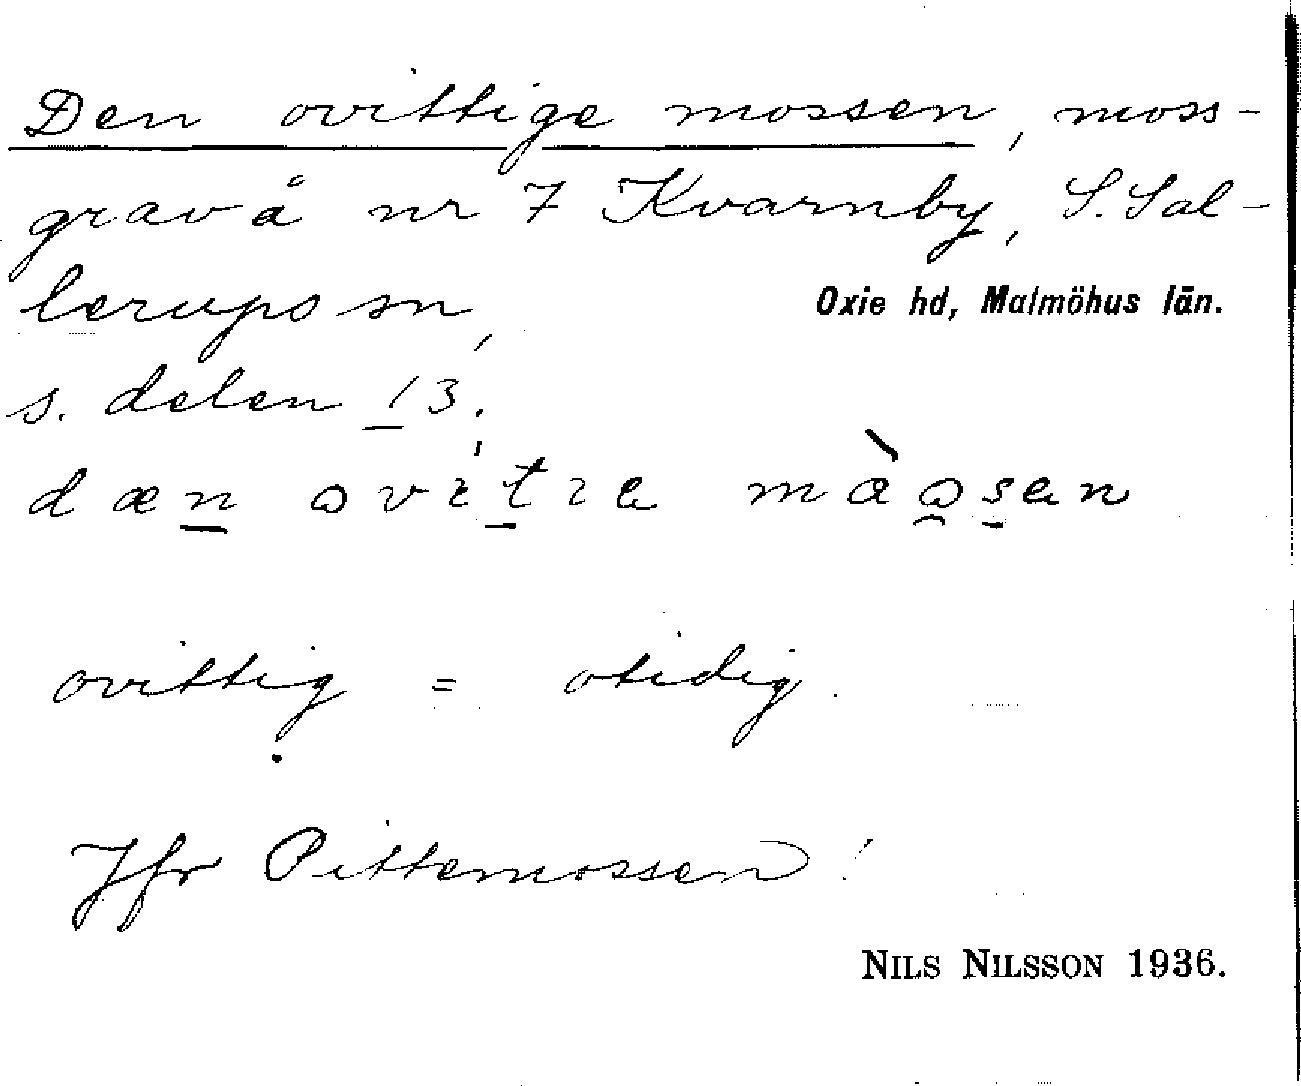 Den ovittige mossen, moss-
grav å nr 7 Kvarnby, S. Sal-
lerups sn,
Oxie hd, Malmöhus län.
s. delen 13.
dæn ovítıe màosen
ovittig = otidig.
Jfr Pittemossen!
NILS NILSSON 1936.